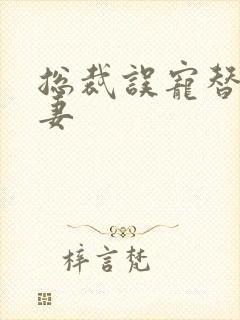 総裁誤寵替
妻
梓言梵